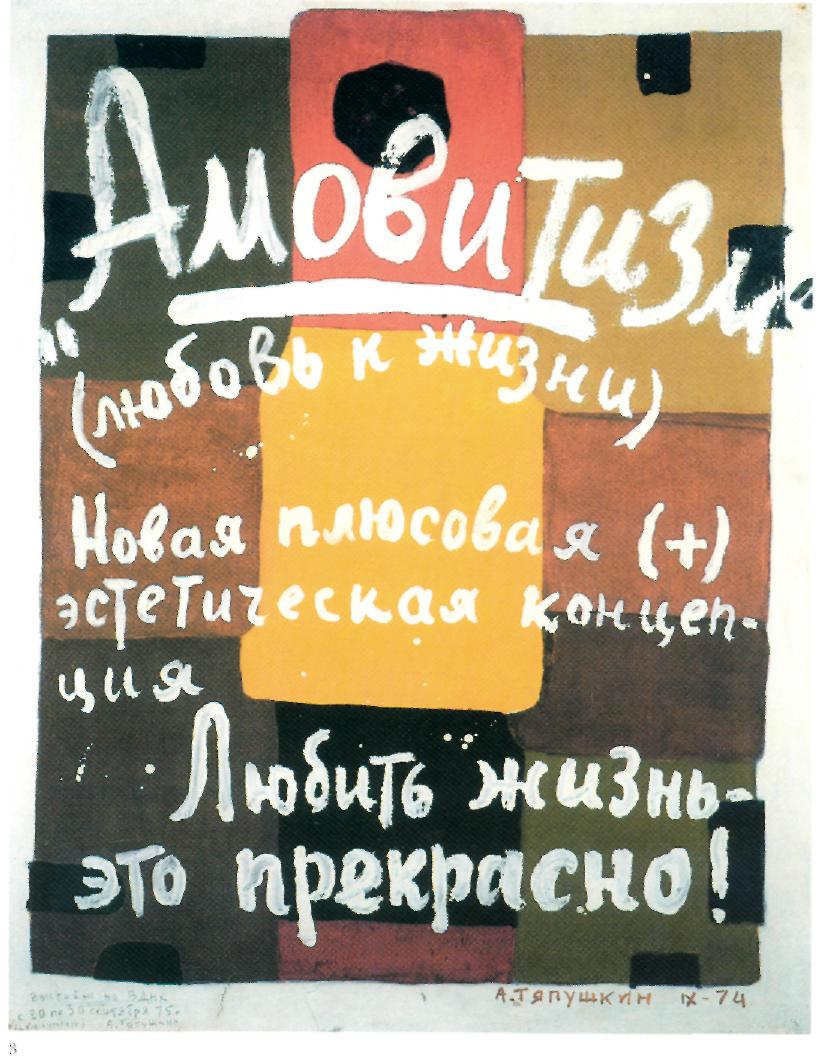 "Амовитизм"
(любовь к жизни)
Новая плюсовая (+)
эстетическая концеп-
ция
Любить жизнь-
это прекрасно!
А.Тяпушкин IX-74
на ВДНХ
с 20 по 30 сентября 75г.
А.Тяпушкин
3